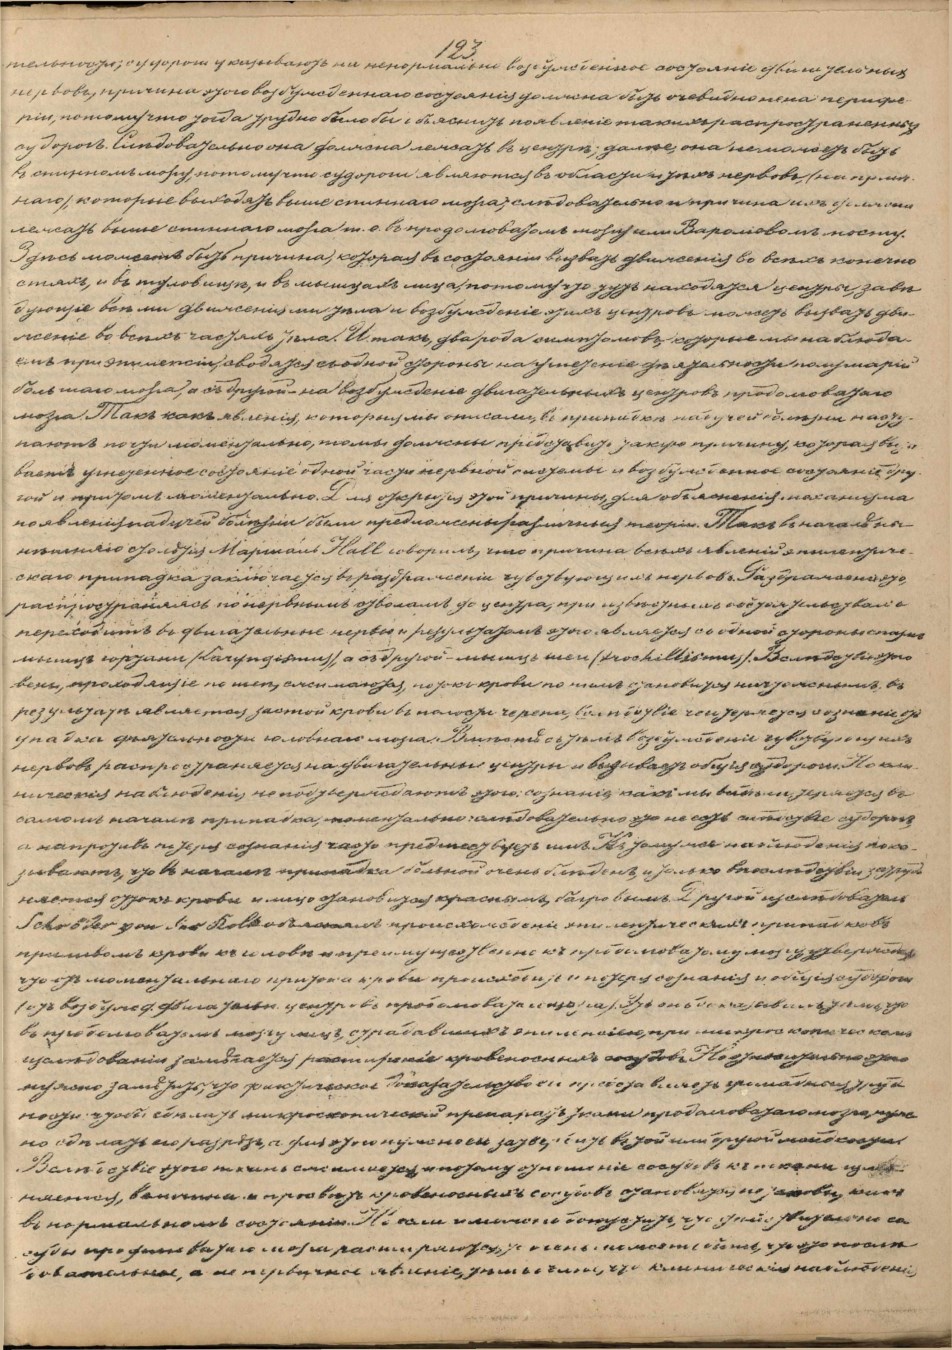 123
тельности; судороги указываютъ на ненормально возбужденное состояніе двигательныхъ
нервовъ, причина этого возбужденнаго состоянія должна быть очевидно не на перифе
ріи, потому что тогда трудно было бы объяснить появленіе такихъ распространенныхъ
судорогъ. Слѣдовательно она должна лежать въ центрѣ; далѣе, она не можетъ быть
въ спинномъ мозгу, потому что судороги являются въ области и тѣхъ нервовъ, (на
которые выходятъ выше спиннаго мозга; слѣдовательно и причина ихъ должна
лежать выше спиннаго мозга т. е. въ продолговатомъ мозгу или Вароліовомъ мосту.
Здѣсь можетъ быть причина, которая въ состояніи вызвать движенія во всѣхъ конечно
стяхъ, и въ туловищѣ, и въ мышцахъ лица, потому что тутъ находятся центры, завѣ
дующіе всѣми движеніями тѣла и возбужденіе этихъ центровъ можетъ вызвать дви
женіе во всѣхъ частяхъ тѣла. Итакъ, два рода симптомовъ, которые мы наблюда
емъ при эпилепсіи, сводятся съ одной стороны на угнетеніе дѣятельности полушарій
большаго мозга, а съ другой – на возбужденіе двигательныхъ центровъ продолговатаго
мозга. Такъ какъ явленія, которыя мы описали, въ припадкѣ падучей болѣзни насту-
паютъ почти моментально, то мы должны представить такую причину, которая вы
ваетъ угнетенное состояніе одной части нервной системы и возбужденное состояніе дру-
гой и притомъ моментально. Для открытія этой причины, для объясненія механизма
появленія падучей болѣзни были предложены различныя теоріи. Такъ въ началѣ ны-
нѣшняго столѣтія Маршаль Hall говорилъ, что причина всѣхъ явленій эпилептиче-
скаго припадка заключается въ раздраженіи чувствующихъ нервовъ. Раздраженіе это,
распространяясь по нервнымъ стволамъ до центра, при извѣстныхъ обстоятельствахъ
переходитъ въ двигательные нервы и результатомъ этого является съ одной стороны спазмъ
мышцъ гортани (Laryngismus), а съ другой – мышцъ шеи (trochelismus). Вслѣдствіе этого
вены, проходящіе по шеѣ, сжимаются, потокъ крови по нимъ становится ничтожнымъ, въ
результатѣ является застой крови въ полости черепа, вслѣдствіе чего теряется сознаніе
упадка дѣятельности головнаго мозга. Вмѣстѣ съ тѣмъ возбужденіе чувствующихъ
нервовъ распространяется на двигательные центры и вызываетъ общія судороги. Но кли-
ническія наблюденія не подтверждаютъ этого: сознаніе, какъ мы видѣли, теряется въ
самомъ началѣ припадка, моментально: слѣдовательно это не есть слѣдствіе судорогъ,
а напротивъ потеря сознанія часто предшествуетъ имъ. Къ тому же наблюденія пока-
зываютъ, что въ началѣ припадка больной очень блѣденъ и только впослѣдствіи затруд
няется стокъ крови и лицо становится краснымъ, багровымъ. Другой изслѣдователь
Schröder van der Kolk объяснялъ происхожденіе эпилептическихъ припадковъ
приливомъ крови къ головѣ и преимущественно къ продолговатому мозгу, утверждая,
что отъ моментальнаго притока крови происходитъ и потеря сознанія и общія судороги
(отъ возбужд. двигательн. центровъ продолговатаго мозга). Это онъ доказывалъ тѣмъ, что
въ продолговатомъ мозгу лицъ, страдавшихъ эпилепсіею, при микроскопическомъ
изслѣдованіи замѣчается расширеніе кровеносныхъ сосудовъ. Но относительно этого
нужно замѣтить, что фактическое доказательство ея представляетъ громадныя труд
ности: чтобы сдѣлать микроскопическій препаратъ ткани продолговатаго мозга, нуж
но сдѣлать его разрѣзъ, а для этого нужно его въ той или другой
Вслѣдствіе этого ткань сжимается и потому отношеніе сосудовъ къ ткани измѣ
няется, величина и просвѣтъ кровеносныхъ сосудовъ становятся не таковы, какъ
въ нормальномъ состояніи. Но если и можно допустить, что дѣйствительно со
суды продолговатаго мозга расширяются, то очень можетъ быть, что это послѣ
довательное, а не первичное явленіе, тѣмъ болѣе, что клиническія наблюденія